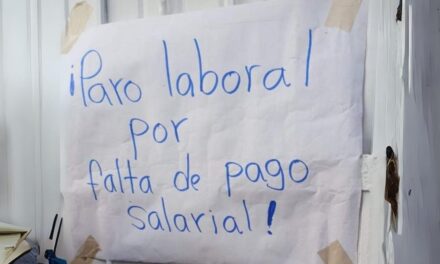 ¡Paro laboral
por
falta de pago
salarial!